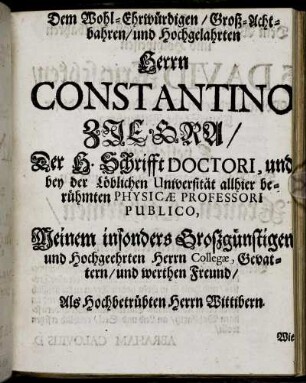 Dem Wohl-Ehrwürdigen/ Groß-Acht-
bahren/ und Hochgelahrten
Herrn
CONSTANTINO
ZIEGRA/
Der H. Schrifft DOCTORI, und
bey der Löblichen Universität allhier be-
rühmten PHYSICÆ PROFESSORI
PUBLICO,
Meinem insonders Großgünstigen
und Hochgeehrten Herrn Collegæ, Gevat-
tern/ und werthen Freund/
Als Hochbetrübten Herrn Wittibern
Wie